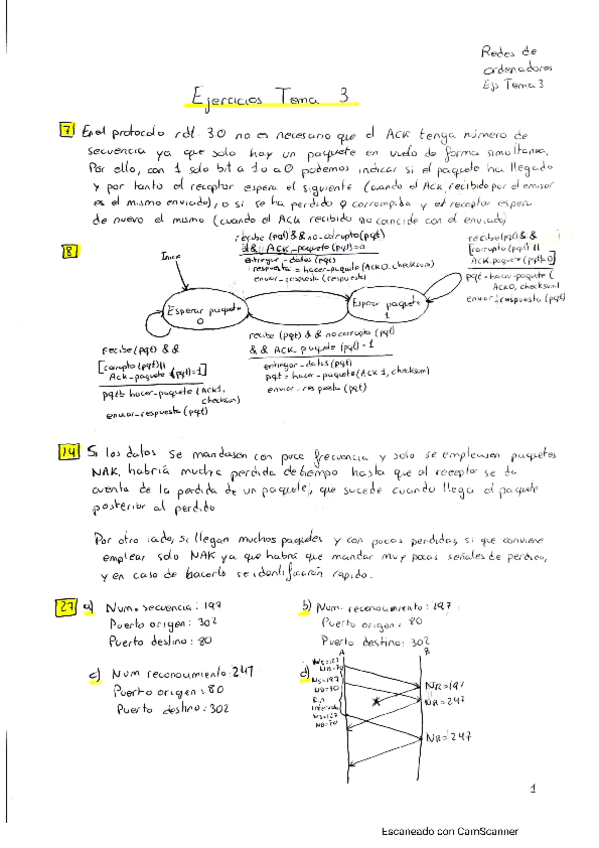 Redes de
ordenadores
Ejs Tema 3
Ejercicios Tema 3
7 En el protocolo rdt 3.0 no es necesario que el ACK tenga número de
secuencia ya que solo hay un paquete en vuelo de forma simultanea.
Por ello, con 1 solo bit a 1 o a 0 podemos indicar si el paquete ha llegado
y por tanto el receptor espera el siguiente (cuando el ACK recibido por el emisor
es el mismo enviado), o si se ha perdido o corrompido y el receptor espera
de nuevo el mismo (cuando el ACK recibido no concide con el enviado)
8
Inicio
recibe (pqt) && no-corrupto(pqt)
&& ACK-paquete (pqt)=0
entregar-datos (pqt)
respuesta = hacer-paquete (ACK0, checksum)
enviar-respuesta (respuesta)
recibe(pqt) &&
[corrupto (pqt) ||
ACK-paquete (pqt)=0]
pqt = hacer-paquete (
ACK0, checksum)
enviar-respuesta (pqt)
Esperar paquete
0
Esperar paquete
1
recibe (pqt) &&
[corrupto (pqt) ||
ACK-paquete (pqt)=1]
pqt = hacer-paquete (ACK1,
checksum)
enviar-respuesta (pqt)
recibe (pqt) && no corrupto (pqt)
&& ACK-paquete (pqt)=1
entregar-datos (pqt)
pqt = hacer-paquete (ACK 1, checksum)
enviar-respuesta (pqt)
14 Si los datos se mandasen con poca frecuencia y solo se empleasen paquetes
NAK, habría mucha perdida de tiempo hasta que el receptor se da
cuenta de la perdida de un paquete, que sucede cuando llega el paquete
posterior al perdido
Por otro lado, si llegan muchos paquetes y con pocas perdidas, si que conviene
emplear solo NAK ya que habrá que mandar muy pocas señales de perdida,
y en caso de hacerlo se identificarán rapido.
27 a) Num. secuencia: 197
Puerto origen: 302
Puerto destino: 80
b) Num. reconocimiento: 197
Puerto origen: 80
Puerto destino: 302
c) Num reconocimiento: 247
Puerto origen: 80
Puerto destino: 302
d)
A
B
NS=127
NB=70
NS=197
NB=50
Fin
intervalo
NS=127
NB=70
NR=197
NR=247
NR=247
1
Escaneado con CamScanner